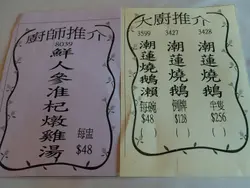 廚師推介
8039
鮮人參准杞燉雞湯
每盅
$48
大廚推介
3599
潮蓮燒鵝瀨
每碗
$48
( )
3427
潮蓮燒鵝
例牌
$128
( )
3428
潮蓮燒鵝
每隻
$256
( )